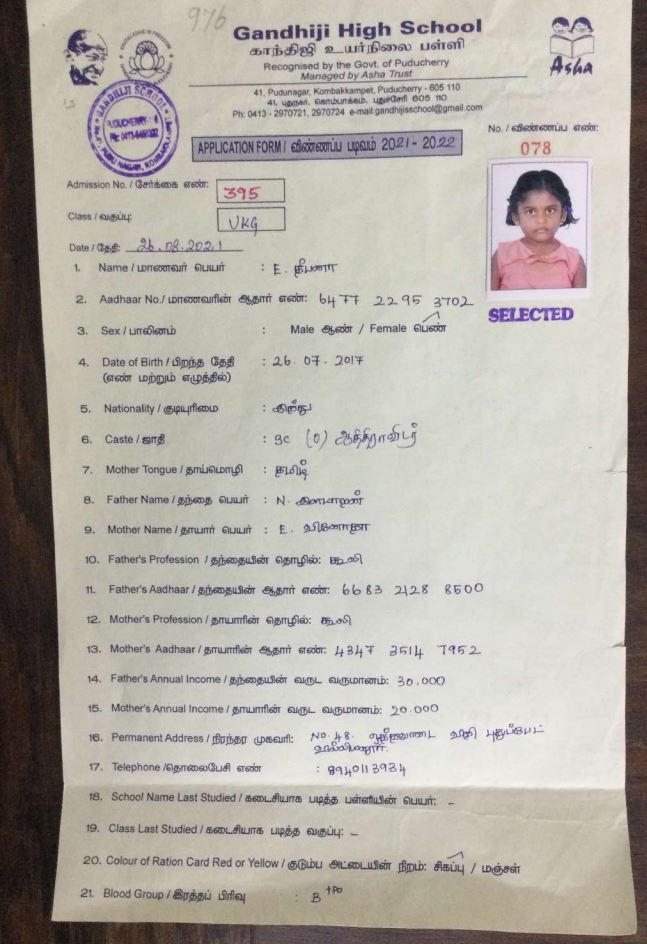 976
Gandhiji High School
காந்திஜி உயர்நிலை பள்ளி
Recognised by the Govt. of Puducherry
Managed by Asha Trust
41, Pudunagar, Kombakkampet, Puducherry - 605 110
41, புதுநகர், கொம்பாக்கம், புதுச்சேரி 605 110
Ph: 0413 - 2970721, 2970724 e-mail:gandhijisschool@gmail.com
Asha
GANDHIJI SCHOOL
PUDUCHERRY
No. / விண்ணப்ப எண்:
078
APPLICATION FORM / விண்ணப்ப படிவம் 2021 - 2022
Admission No. / சேர்க்கை எண்: 395
Class / வகுப்பு: UKG
Date / தேதி: 26.08.2021
SELECTED
1. Name / மாணவர் பெயர் : E.
2. Aadhaar No./ மாணவரின் ஆதார் எண்: 6477 2295 3702
3. Sex / பாலினம் : Male ஆண் / Female பெண்
4. Date of Birth / பிறந்த தேதி : 26. 07 - 2017
(எண் மற்றும் எழுத்தில்)
5. Nationality / குடியுரிமை :
6. Caste / ஜாதி : SC (O) ஆதிதிராவிடர்
7. Mother Tongue / தாய்மொழி : தமிழ்
8. Father Name / தந்தை பெயர் : N.
9. Mother Name / தாயார் பெயர் : E. வினோதா
10. Father's Profession / தந்தையின் தொழில்: கூலி
11. Father's Aadhaar / தந்தையின் ஆதார் எண்: 6683 2128 8500
12. Mother's Profession / தாயாரின் தொழில்: கூலி
13. Mother's Aadhaar / தாயாரின் ஆதார் எண்: 4347 3514 7952
14. Father's Annual Income / தந்தையின் வருட வருமானம்: 30.000
15. Mother's Annual Income / தாயாரின் வருட வருமானம்: 20.000
16. Permanent Address / நிரந்தர முகவரி: No. 48. வீதி
17. Telephone /தொலைபேசி எண் : 8940113934
18. School Name Last Studied / கடைசியாக படித்த பள்ளியின் பெயர்: -
19. Class Last Studied / கடைசியாக படித்த வகுப்பு: -
20. Colour of Ration Card Red or Yellow / குடும்ப அட்டையின் நிறம்: சிகப்பு / மஞ்சள்
21. Blood Group / இரத்தப் பிரிவு : B